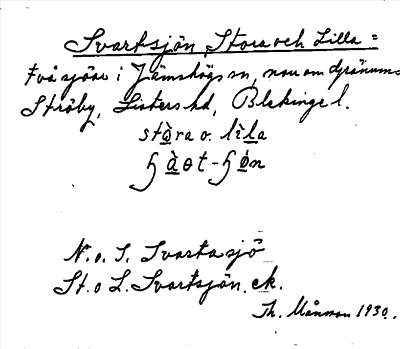 Svartsjön, Stora och Lilla =
två sjöar i Jämshögs sn, norr om Gränums
Ströby, Listers hd, Blekinge l.
stòra o. lìla
N. o. S. Svartasjö
St. o L. Svartsjön. ek.
Th. Månsson 1930.